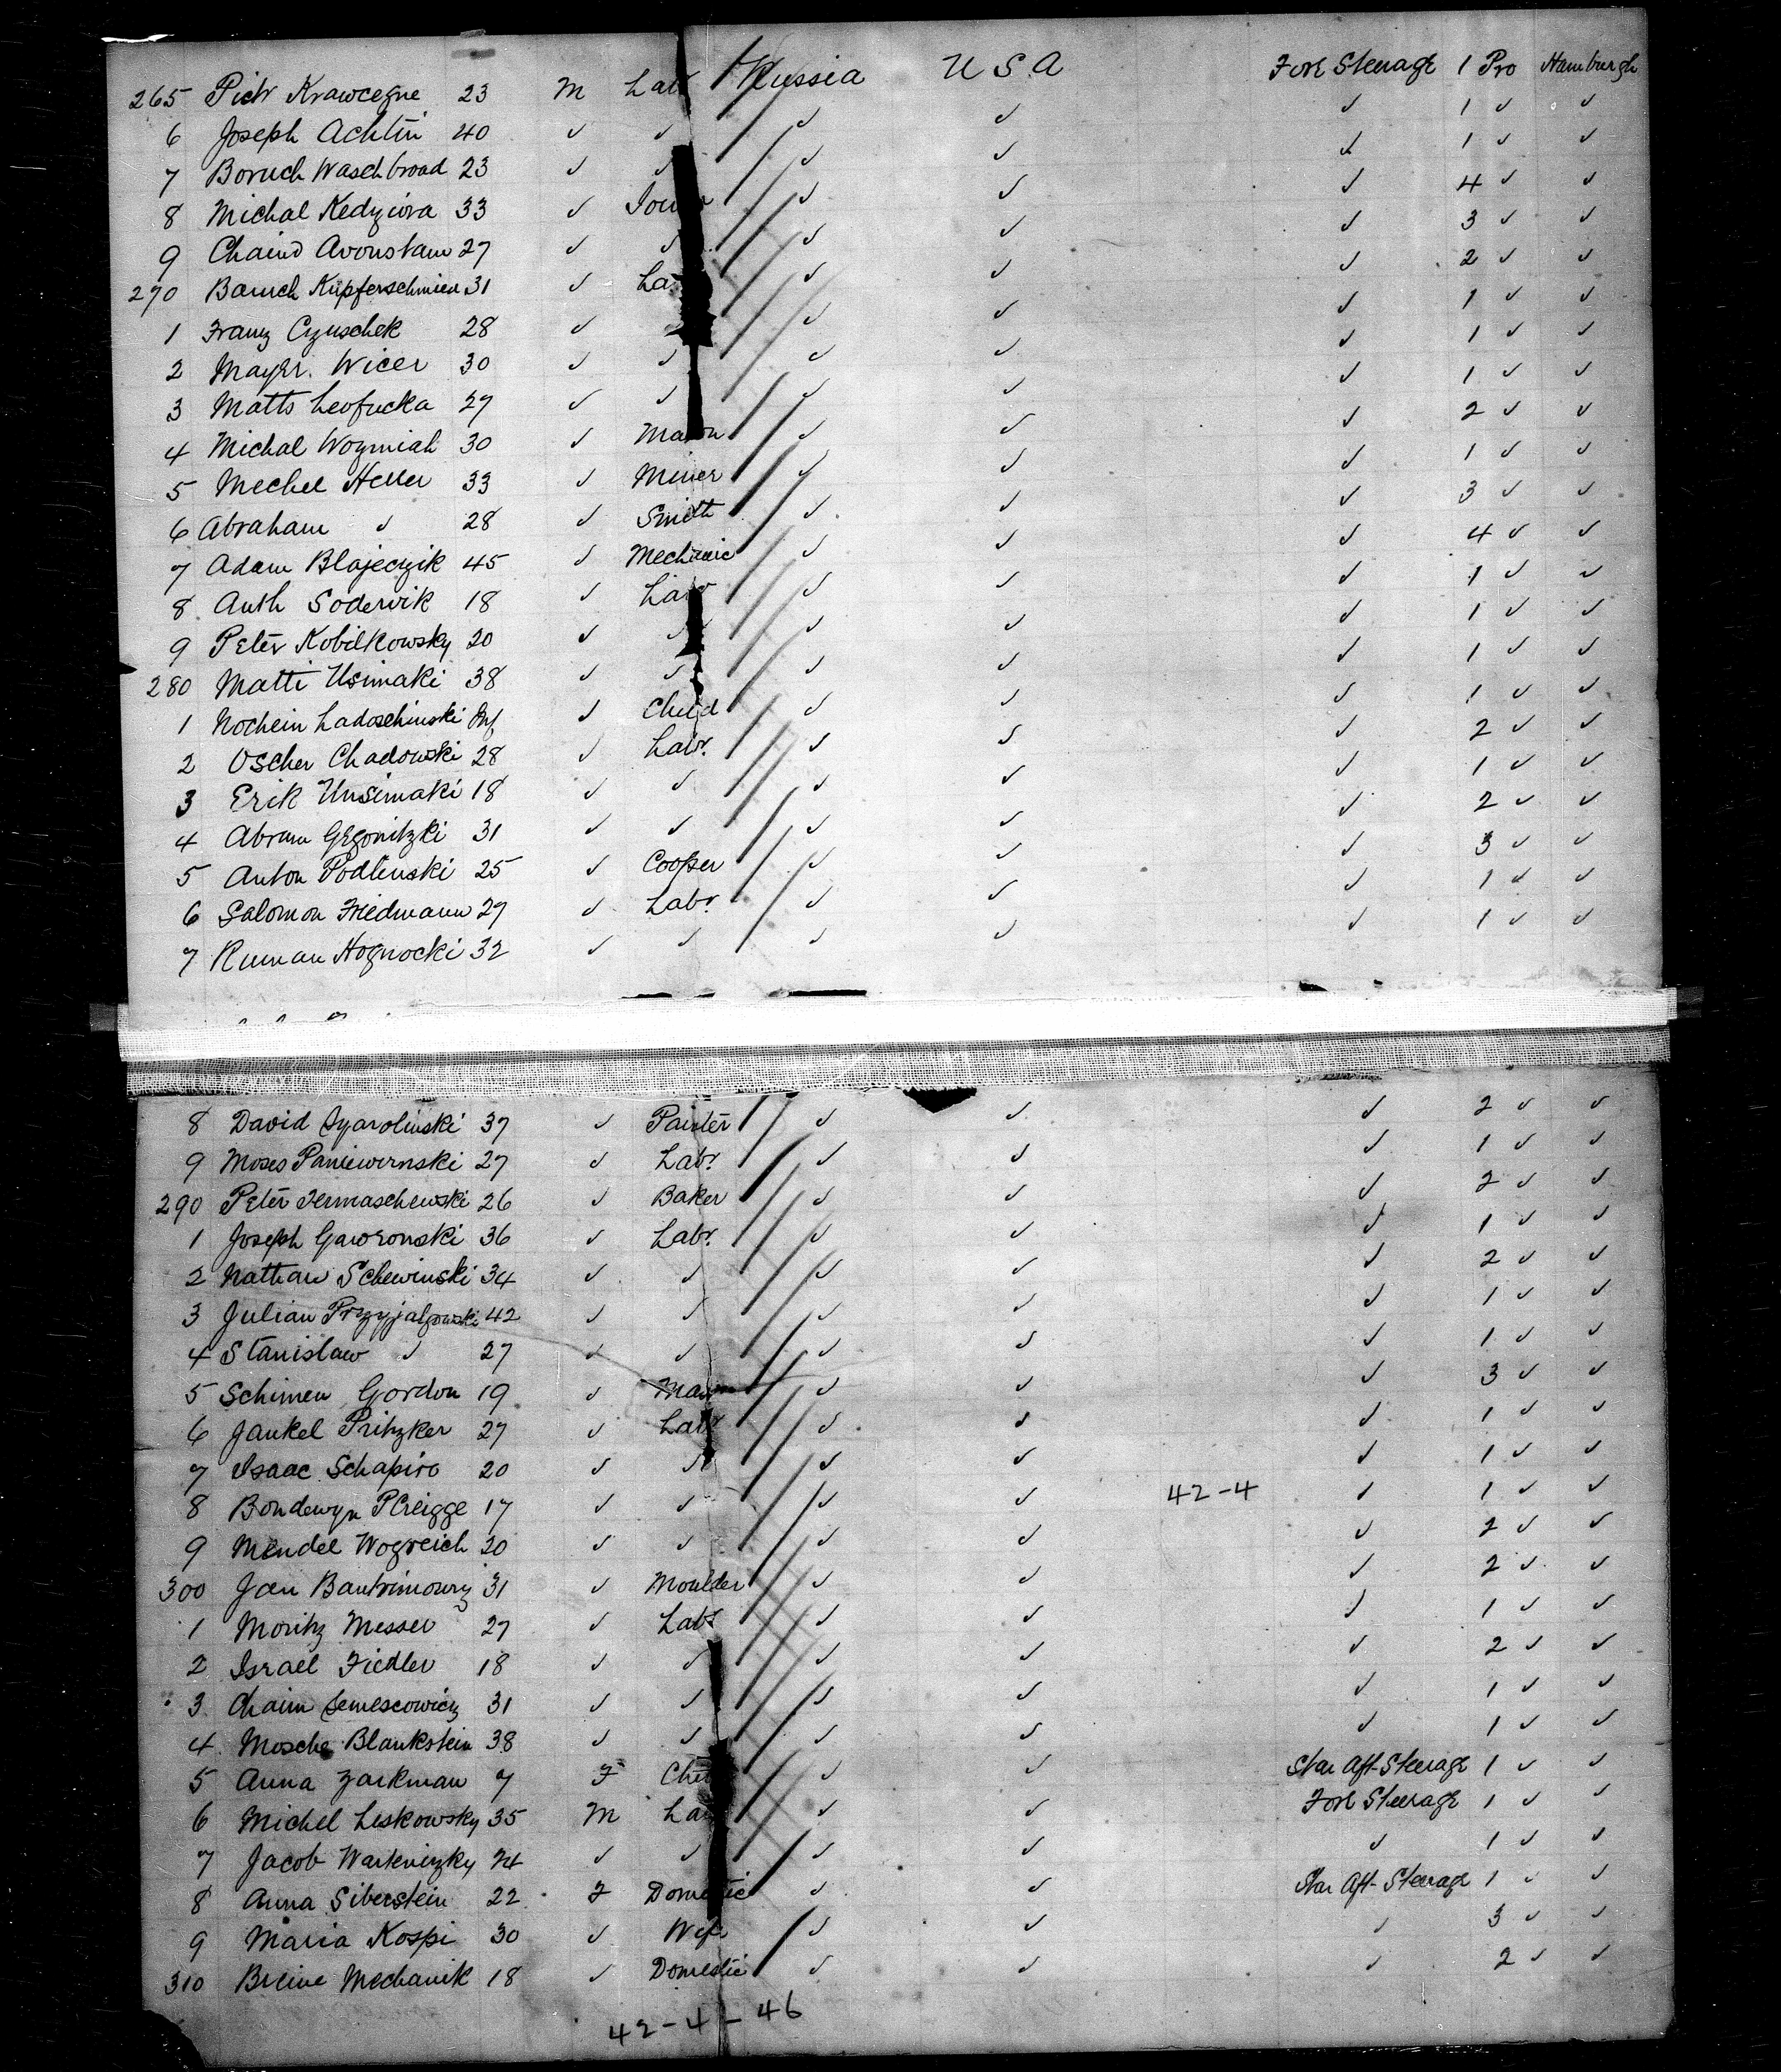 265 Piotr Krawcegne 23 M Lab Russia U S A Fore Steerage 1 Pro Hamburgh
6 Joseph Achtin 40 ✓ ✓ ✓ ✓ ✓ 1 ✓ ✓
7 Boruch Waschbroad 23 ✓ ✓ ✓ ✓ ✓ 1 ✓ ✓
8 Michal Kedziora 33 ✓ ✓ ✓ ✓ 4 ✓ ✓
9 Chaind 27 ✓ ✓ ✓ ✓ ✓ 3 ✓ ✓
270 Baruch Kupferschmied 31 ✓ La ✓ ✓ ✓ 2 ✓ ✓
1 Franz Czuschek 28 ✓ ✓ ✓ ✓ 1 ✓ ✓
2 Mayer. Wicer 30 ✓ ✓ ✓ ✓ ✓ 1 ✓ ✓
3 Matts Leofucka 27 ✓ ✓ ✓ ✓ ✓ 1 ✓ ✓
4 Michal Wozniak 30 ✓ Mason ✓ ✓ ✓ 2 ✓ ✓
5 Mechel Heller 33 ✓ Miner ✓ ✓ ✓ 1 ✓ ✓
6 Abraham ✓ 28 ✓ Smith ✓ ✓ ✓ 3 ✓ ✓
7 Adam Blajeczik 45 ✓ Mechanic ✓ ✓ ✓ 4 ✓ ✓
8 Anth Sodervik 18 ✓ Labr ✓ ✓ ✓ 1 ✓ ✓
9 Peter Kobilkowsky 20 ✓ ✓ ✓ ✓ ✓ 1 ✓ ✓
280 Matti Usimaki 38 ✓ ✓ ✓ ✓ ✓ 1 ✓ ✓
1 Nochein Ladoschinski Inf ✓ Child ✓ ✓ ✓ 1 ✓ ✓
2 Oscher Chadowski 28 ✓ Labr. ✓ ✓ ✓ 2 ✓ ✓
3 Erik Unsimaki 18 ✓ ✓ ✓ ✓ ✓ 1 ✓ ✓
4 Abram Gegonitzki 31 ✓ ✓ ✓ ✓ ✓ 2 ✓ ✓
5 Anton Podlinski 25 ✓ Cooper ✓ ✓ ✓ 3 ✓ ✓
6 Salomon Friedmann 27 ✓ Labr. ✓ ✓ ✓ 1 ✓ ✓
7 Ruman Hognocki 32 ✓ ✓ ✓ ✓ ✓ 1 ✓ ✓
8 David 37 ✓ Painter ✓ ✓ ✓ 2 ✓ ✓
9 Moses Paniewernski 27 ✓ Labr. ✓ ✓ ✓ 1 ✓ ✓
290 Peter Jermaschewski 26 ✓ Baker ✓ ✓ ✓ 2 ✓ ✓
1 Joseph Gaworonski 36 ✓ Labr. ✓ ✓ ✓ 1 ✓ ✓
2 Nathan Schewinski 34 ✓ ✓ ✓ ✓ ✓ 2 ✓ ✓
3 Julian Przyjalgowski 42 ✓ ✓ ✓ ✓ ✓ 1 ✓ ✓
4 Stanislaw ✓ 27 ✓ ✓ ✓ ✓ ✓ 1 ✓ ✓
5 Schimen Gordon 19 ✓ Mason ✓ ✓ ✓ 3 ✓ ✓
6 Jankel Pritzker 27 ✓ Labr ✓ ✓ ✓ 1 ✓ ✓
7 Isaac Schapiro 20 ✓ ✓ ✓ ✓ ✓ 1 ✓ ✓
8 Bondewyn 17 ✓ ✓ ✓ ✓ 42-4 ✓ 1 ✓ ✓
9 Mendel Wogreich 20 ✓ ✓ ✓ ✓ ✓ 2 ✓ ✓
300 Jan 31 ✓ Moulder ✓ ✓ ✓ 2 ✓ ✓
1 Moritz Messer 27 ✓ Labr ✓ ✓ ✓ 1 ✓ ✓
2 Israel Fiedler 18 ✓ ✓ ✓ ✓ ✓ 2 ✓ ✓
3 Chaim 31 ✓ ✓ ✓ ✓ ✓ 1 ✓ ✓
4 Mosche Blankstein 38 ✓ ✓ ✓ ✓ ✓ 1 ✓ ✓
5 Anna Zarkman 7 F Child ✓ ✓ Star Aft Steerage 1 ✓ ✓
6 Michel Leskowsky 35 M La ✓ ✓ Fore Steerage 1 ✓ ✓
7 Jacob Warteniczky 24 ✓ ✓ ✓ ✓ ✓ 1 ✓ ✓
8 Anna Siberstein 22 F Domestic ✓ ✓ Star Aft Steerage 1 ✓ ✓
9 Maria Kospi 30 ✓ Wife ✓ ✓ ✓ 3 ✓ ✓
310 Breine Mechanik 18 ✓ Domestic ✓ ✓ ✓ 2 ✓ ✓
42-4-46